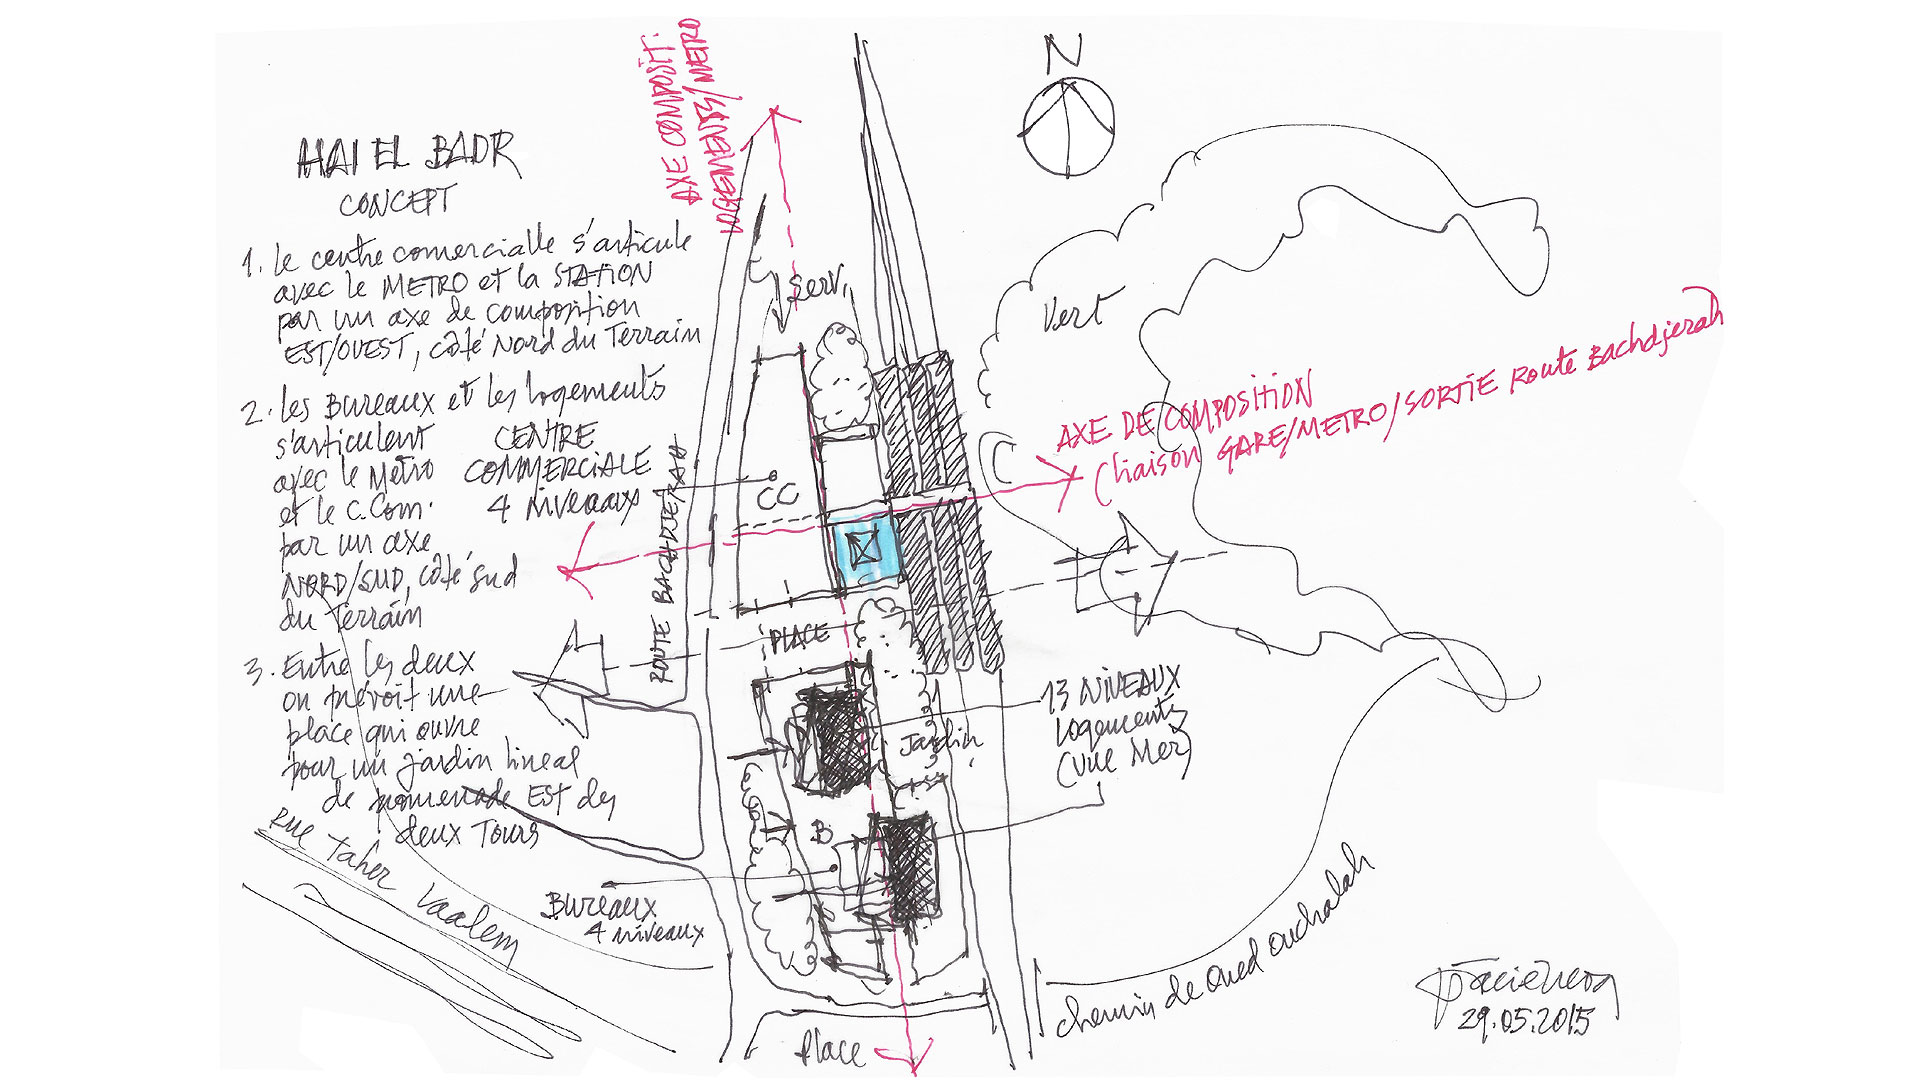 HAI EL BADR
CONCEPT
1. Le centre comercialle s'articule
avec le METRO et la STATION
par un axe de composition
EST/OUEST, côté Nord du Terrain
2. Les Bureaux et les logements
s'articulent
avec le Metro
et le C.Com.
par un axe
NORD/SUD, côté sud
du Terrain
3. Entre les deux
on prévoit une
place qui ouvre
pour un jardin lineal
de promenade Est des
deux Tours
CENTRE
COMMERCIALE
4 Niveaux
AXE COMPOSIT.
LOGEMENTS/METRO
N
Serv.
Vert
AXE DE COMPOSITION
(liaison GARE/METRO/SORTIE Route Bachdjerah
ROUTE BACHDJERAH
CC
PLACE
13 NIVEAUX
Logements
(Vue Mer)
Jardin
B
Bureaux
4 niveaux
Rue Taher
Place
chemin de Oued ouchalah
29.05.2015